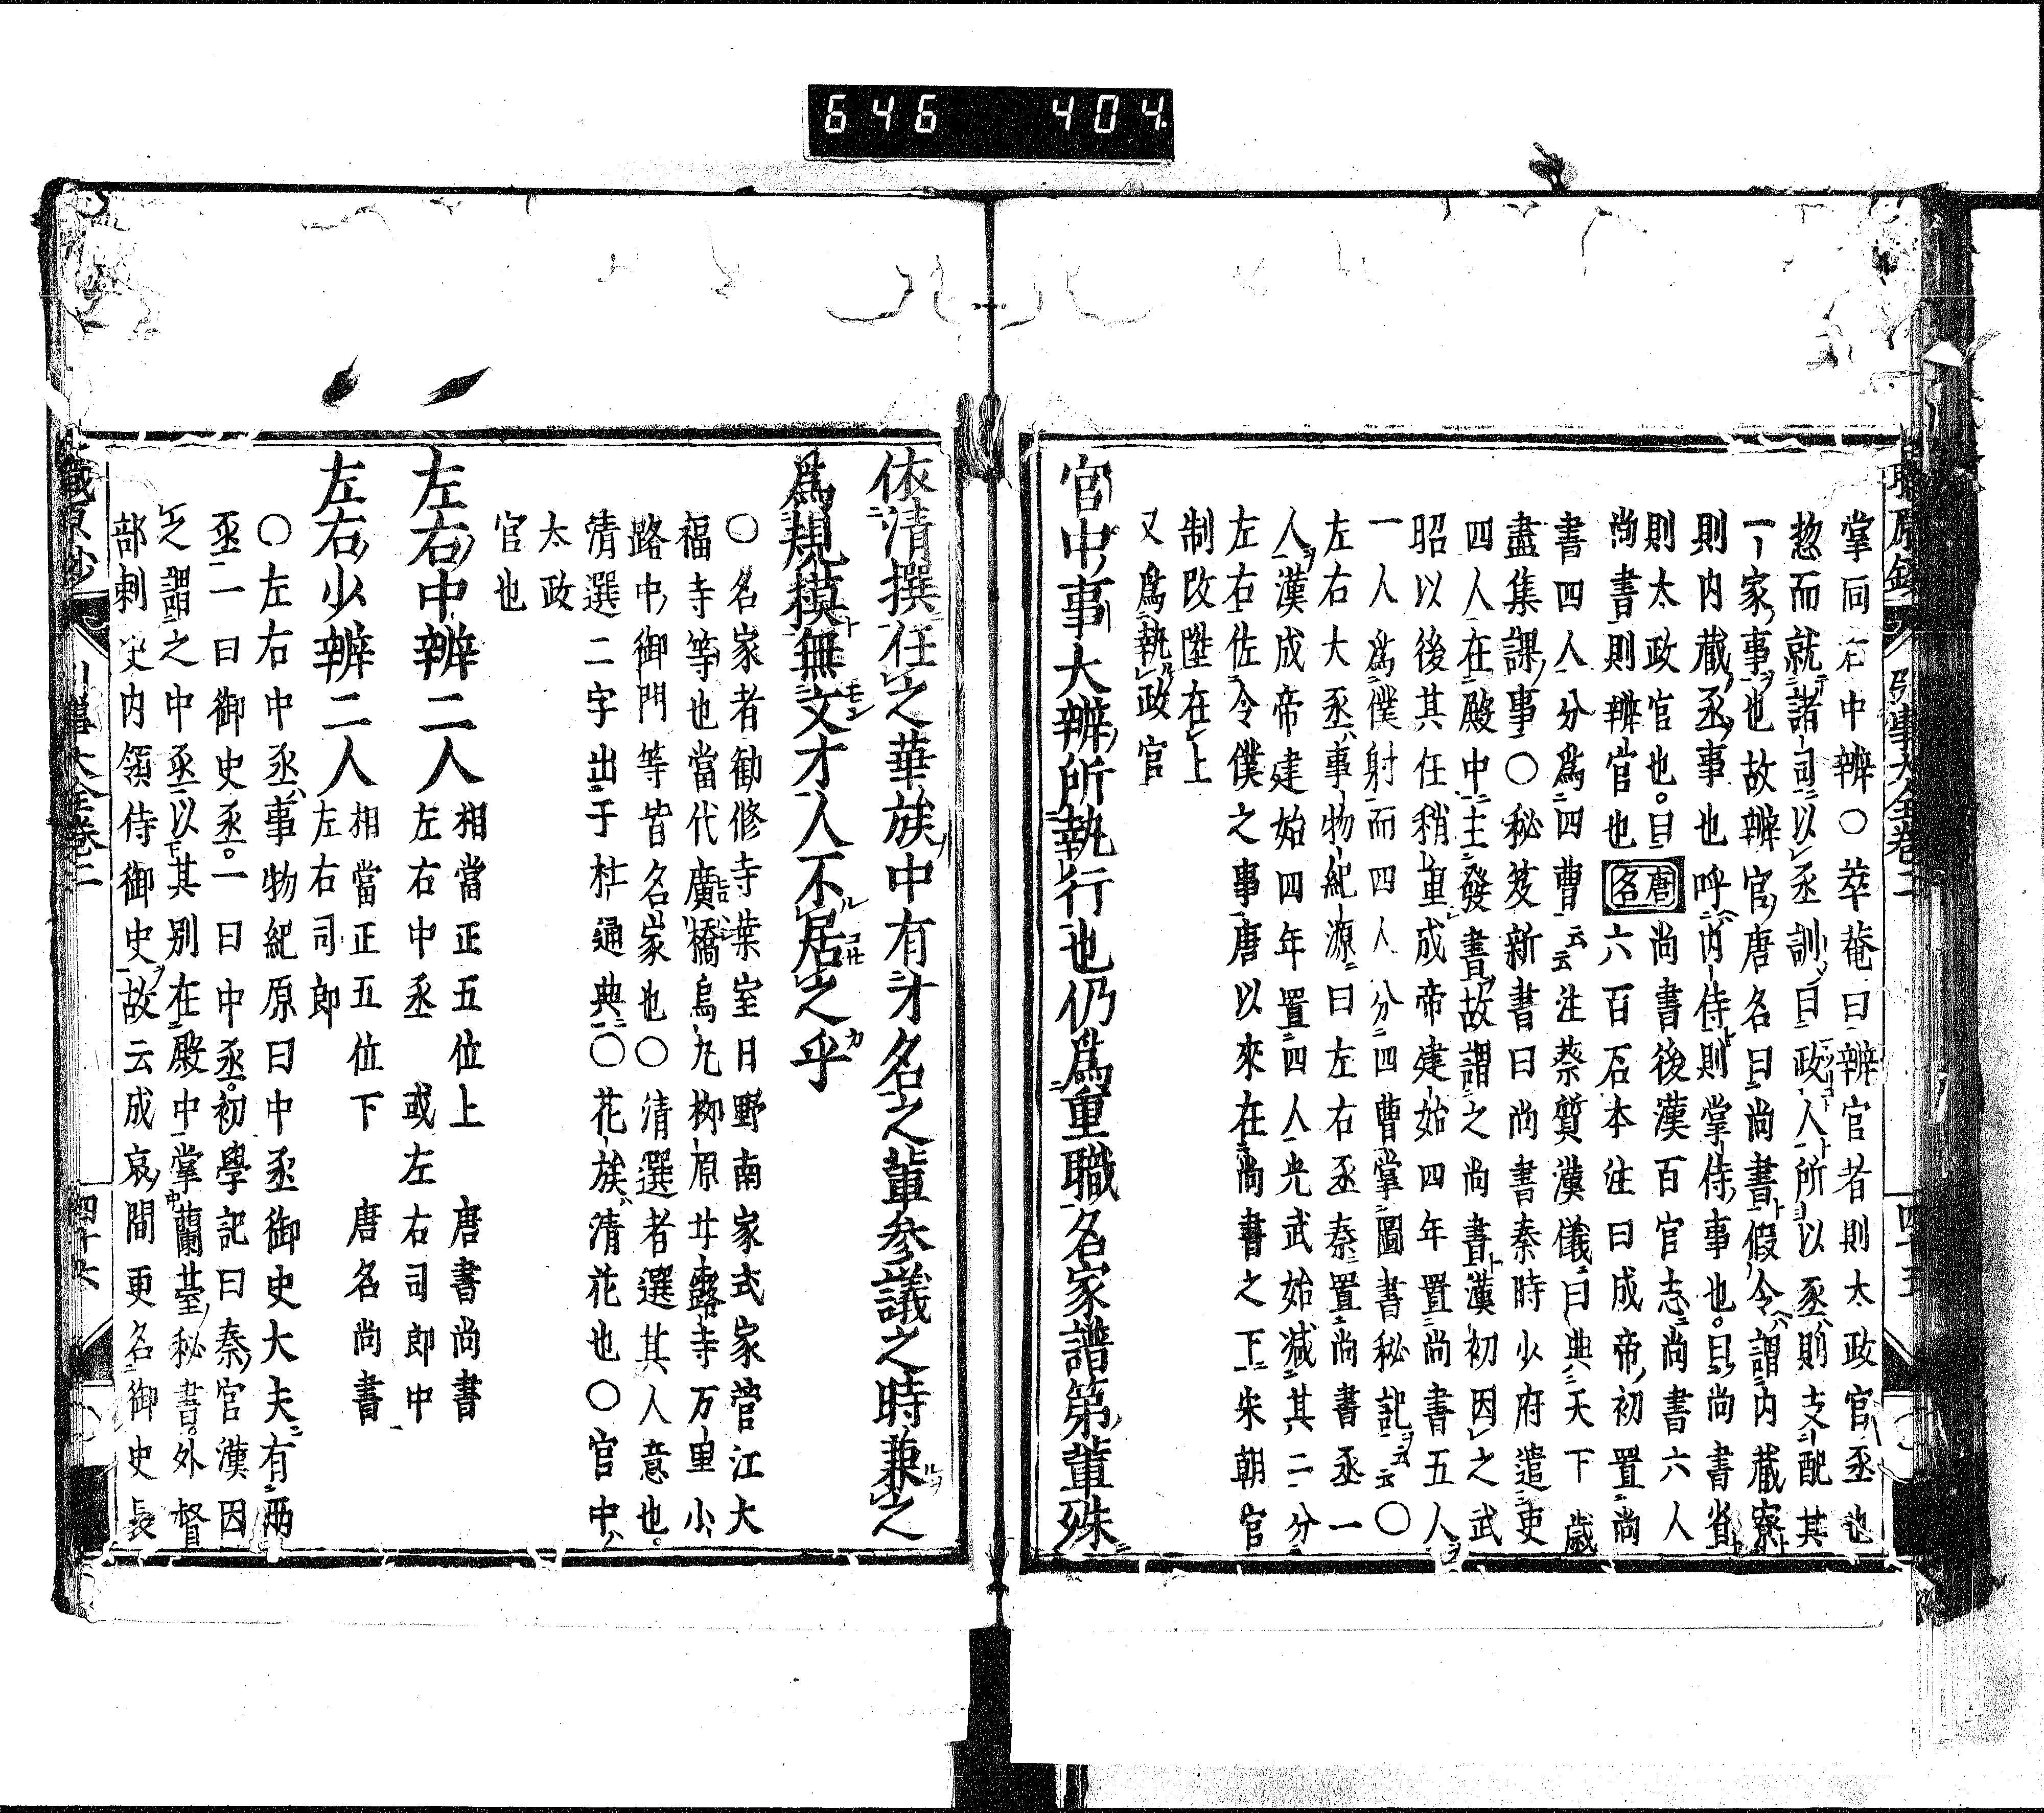 646 404.
掌同右中辨○莘菴曰辨官者則太政官丞也
惣而就諸司以丞訓曰政人所以丞則支配其
一家事也故辨官唐名曰尚書假令謂内藏寮
則内藏丞事也呼内侍則掌侍事也曰尚書省
則太政官也曰唐尚書後漢百官志尚書六人
尚書則辨官也名六百石本注曰成帝初置尚
書四人分爲四曹云云注蔡質漢儀曰典天下歲
盡集課事○秘笈新書曰尚書秦時少府遣吏
四人在殿中主發書故謂之尚書漢初因之武
昭以後其任稍重成帝建始四年置尚書五人
一人爲僕射而四人分四曹掌圖書秘記云云○
左右大丞事物紀源曰左右丞秦置尚書丞一
人漢成帝建始四年置四人光武始减其二分
左右佐令僕之事唐以來在尚書之下宋朝官
制改陞在上
又爲執政官
官中事大辨所執行也仍爲重職名家譜第輩殊
依清撰任之華族中有才名之輩參議之時兼之
爲規模無文才人不居之乎
○名家者勧修寺葉室日野南家式家菅江大
福寺等也當代廣橋烏丸柳原甘露寺万里小
路中御門等皆名家也○清選者選其人意也
清選二字出于杜通典○花族清花也○官中
太政
官也
左右中辨二人 相當正五位上 唐書尚書
左右中丞 或左右司郎中
左右少辨二人 相當正五位下 唐名尚書
左右司郎
○左右中丞事物紀原曰中丞御史大夫有兩
丞一曰御史丞一曰中丞初學記曰秦官漢因
之謂之中丞以其別在殿中掌蘭䑓秘書外督
部刺史内領侍御史故云成哀間更名御史長
職原抄 引事大全卷二 四十六